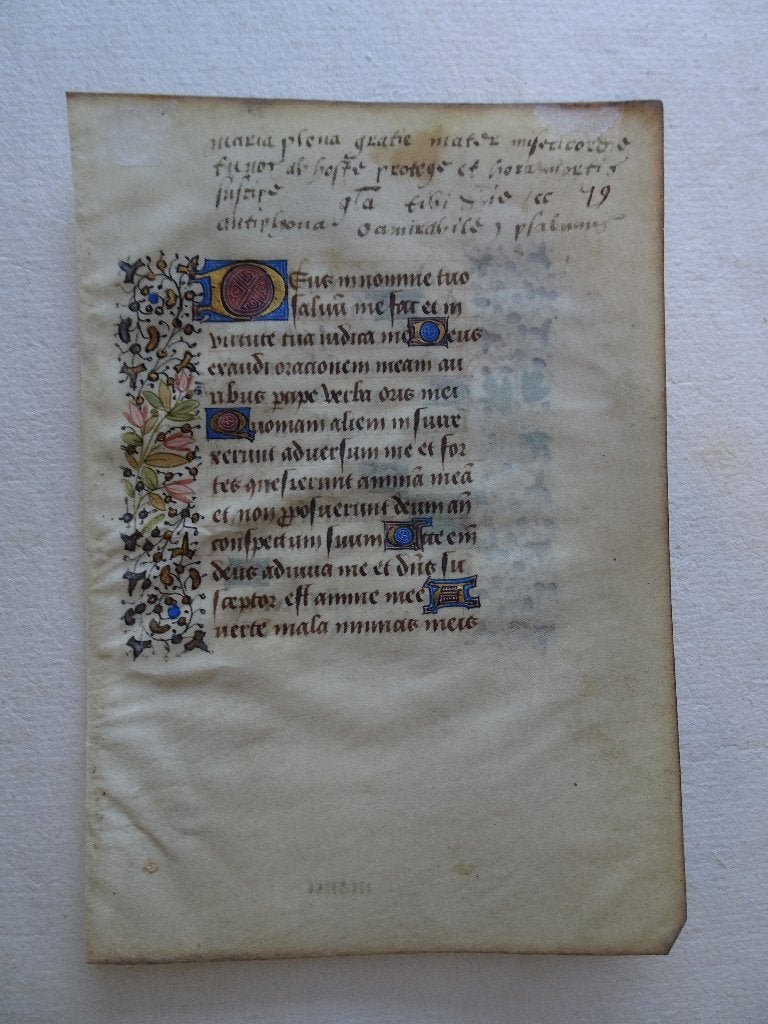 maria plena gratie mater misericordie
tu nos ab hoste protege et hora mortis
suscipe gl̄a tibi dn̄e
19
antiphona O amirabile psalmus
Deus in nomine tuo
saluū me fac et in
virtute tua iudica me Deus
exaudi oracionem meam au
ribus percipe verba oris mei
Quoniam alieni insurre
xerunt aduersum me et for
tes quesierunt animā meā
et non proposuerunt deum an̄
conspectum suum Ecce em̄
deus adiuua me et dn̄s su
sceptor est anime mee A
uerte mala inimicis meis